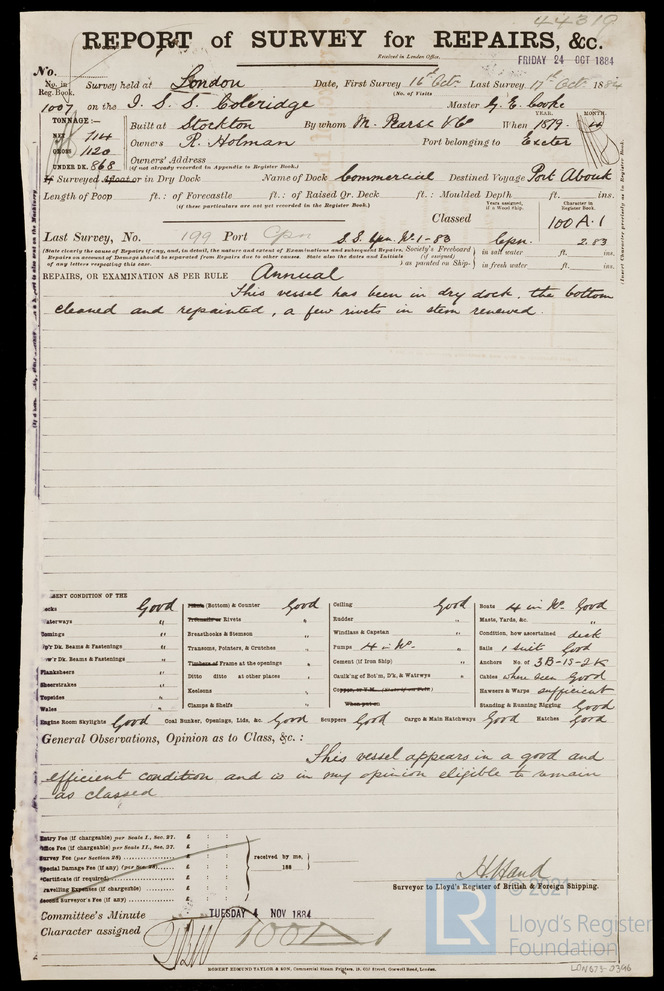 44319
REPORT of SURVEY for REPAIRS, &c.
Received in London Office.
FRIDAY 24 OCT 1884
No.
No. in Reg. Book. Survey held at London Date, First Survey 16th Oct. Last Survey 17th Oct. 1884
(No. of Visits)
1007 on the I. S. S. Coleridge Master G. E. Cooke
TONNAGE:— YEAR. MONTH.
NET 714 Built at Stockton By whom M. Pearse & Co When 1879. 4
GROSS 1120 Owners R. Holman Port belonging to Exeter
UNDER DK. 868 Owners' Address
(if not already recorded in Appendix to Register Book.)
If Surveyed afloat or in Dry Dock Name of Dock Commercial Destined Voyage Port Abouk
Length of Poop ft.: of Forecastle ft.: of Raised Qr. Deck ft.: Moulded Depth ft. ins.
(if these particulars are not yet recorded in the Register Book.)
Years assigned, if a Wood Ship. Character in Register Book.
Classed 100A.1
Last Survey, No. 199 Port Cpn S.S. Cpn. No. 1-83 Cpn. 2.83
(State clearly the cause of Repairs if any, and, in detail, the nature and extent of Examinations and subsequent Repairs. Society's Freeboard in salt water ft. ins.
Repairs on account of Damage should be separated from Repairs due to other causes. State also the dates and Initials (if assigned)
of any letters respecting this case. ) as painted on Ship- in fresh water ft. ins.
REPAIRS, OR EXAMINATION AS PER RULE Annual
This vessel has been in dry dock, the bottom
cleaned and repainted, a few rivets in stem renewed.
PRESENT CONDITION OF THE
Decks Good Planks (Bottom) & Counter Good Ceiling Good Boats 4 in No. Good
Waterways " Treenails or Rivets " Rudder " Masts, Yards, &c. "
Comings " Breasthooks & Stemson " Windlass & Capstan " Condition, how ascertained deck
Up'r Dk. Beams & Fastenings " Transoms, Pointers, & Crutches " Pumps 4 in No. " Sails 1 suit Good
Low'r Dk. Beams & Fastenings " Timbers or Frame at the openings " Cement (if Iron Ship) " Anchors No. of 3B-1S-2K
Planksheers " Ditto ditto at other places " Caulk'ng of Bot'm, D'k, & Waterw'ys " Cables when seen Good
Sheerstrakes " Keelsons " Copper, or Y.M. Hawsers & Warps sufficient
Topsides "
Wales " Clamps & Shelfs " When put on Standing & Running Rigging Good
Engine Room Skylights Good Coal Bunker, Openings, Lids, &c. Good Scuppers Good Cargo & Main Hatchways Good Hatches Good
General Observations, Opinion as to Class, &c.:
This vessel appears in a good and
efficient condition and is in my opinion eligible to remain
as classed
Entry Fee (if chargeable) per Scale I., Sec. 27. £ : :
Office Fee (if chargeable) per Scale II., Sec. 27. £ : :
Survey Fee (per Section 28) £ : : received by me,
Special Damage Fee (if any) (per Sec. 28) £ : : 188
Certificate (if required) £ : :
Travelling Expenses (if chargeable) £ : :
Second Surveyor's Fee (if any) £ : :
H. Hand
Surveyor to Lloyd's Register of British & Foreign Shipping.
Committee's Minute TUESDAY 4 NOV 1884
Character assigned 100A1
© 2021
LR
Lloyd's Register
Foundation
ROBERT EDMUND TAYLOR & SON, Commercial Steam Printers, 19, Old Street, Goswell Road, London.
LDN673-0396